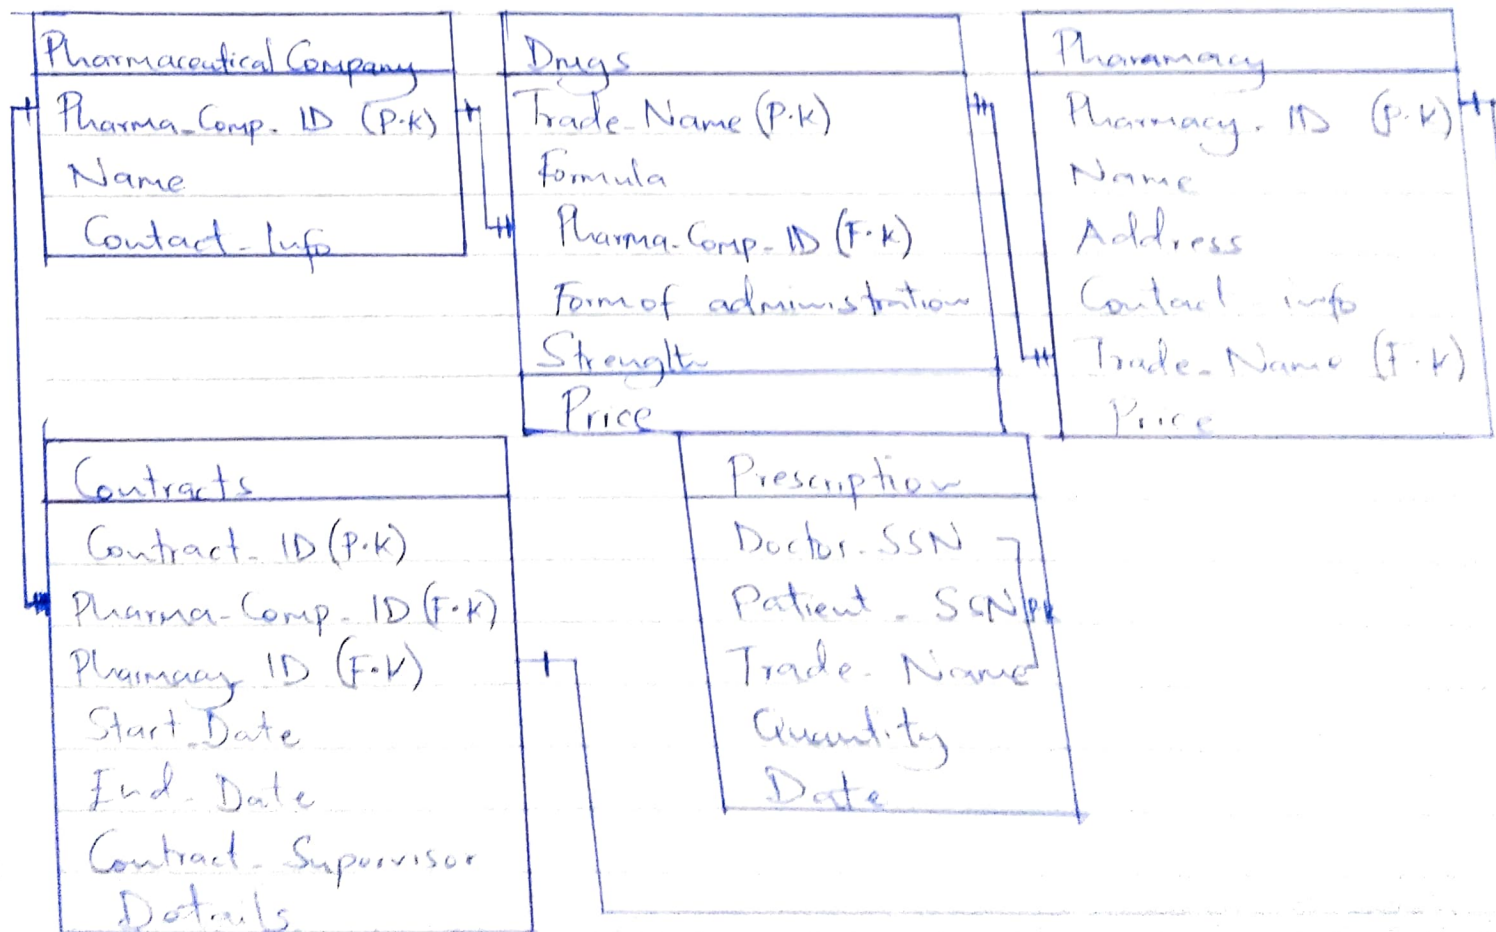 Pharmaceutical Company
Pharma_Comp. ID (P.K)
Name
Contact_Info
Drugs
Trade_Name (P.K)
Formula
Pharma_Comp_ID (F.K)
Form of administration
Strength
Price
Pharamacy
Pharmacy_ID (P.K)
Name
Address
Contact info
Trade_Name (F.K)
Price
Contracts
Contract_ID (P.K)
Pharma_Comp_ID (F.K)
Pharmacy ID (F.K)
Start_Date
End_Date
Contract_Supervisor
Details
Prescription
Doctor_SSN
Patient_SSN PK
Trade_Name
Quantity
Date